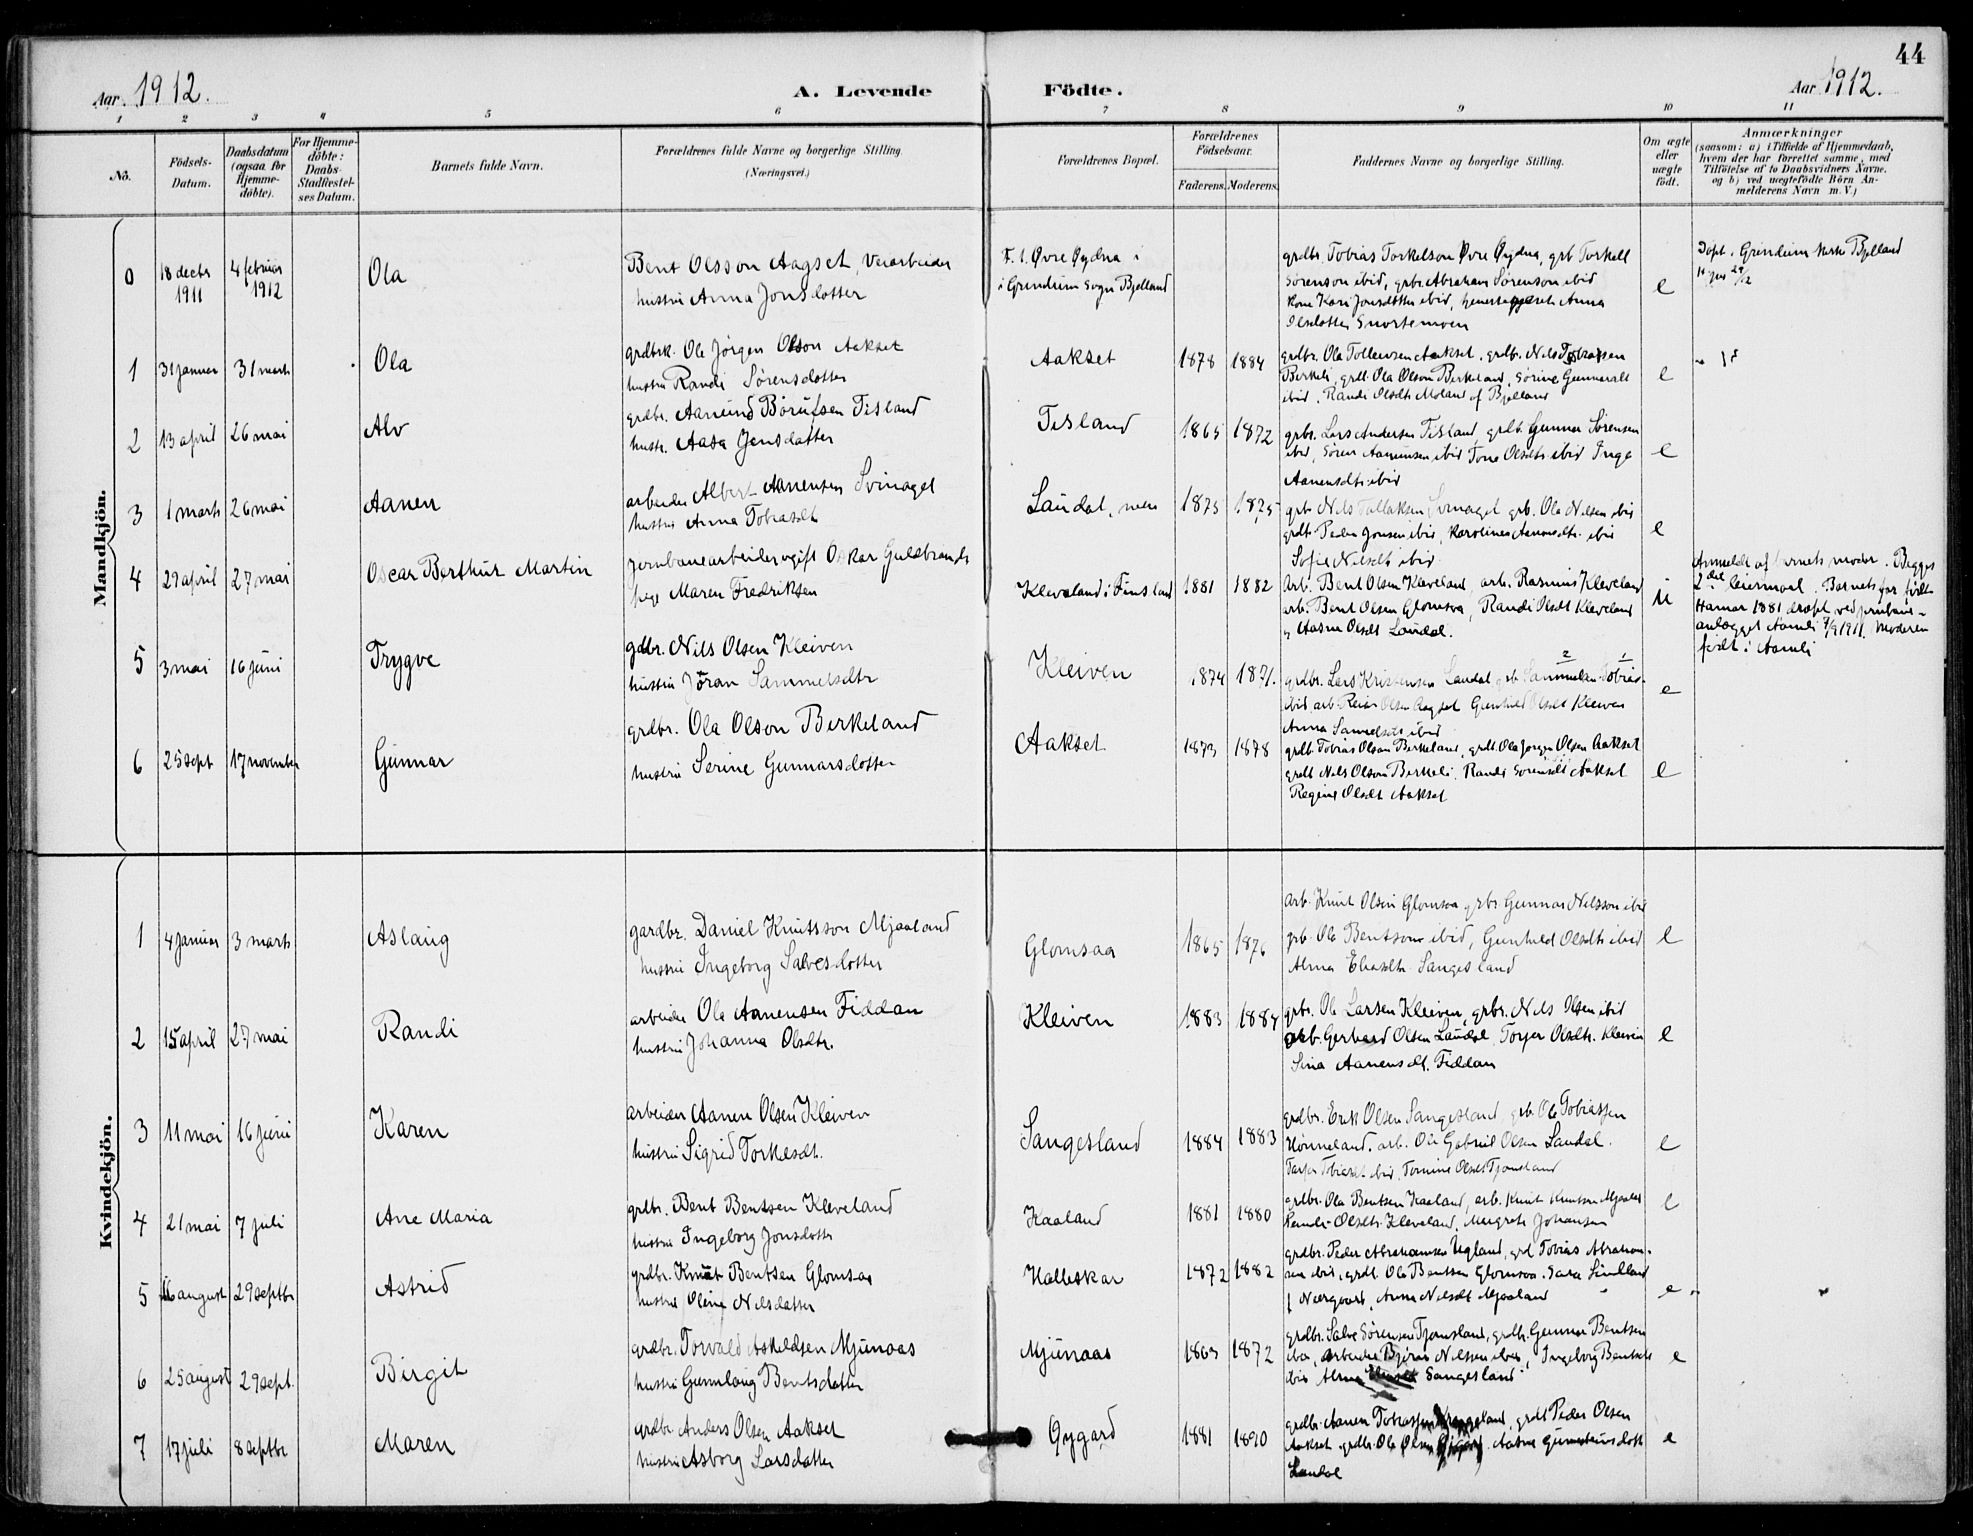 44
Aar. 1912.
A. Levende Födte.
Aar 1912.
1 2 3 4 5 6 7 8 9 10 11
No.
Födsels-Datum.
Daabsdatum (ogsaa for Hjemme-döbte).
For Hjemme-döbte: Daabs-Stadfæstel-ses Datum.
Barnets fulde Navn.
Forældrenes fulde Navne og borgerlige Stilling. (Næringsvei.)
Forældrenes Bopæl.
Forældrenes Födselsaar.
Faderens. Moderens.
Faddernes Navne og borgerlige Stilling.
Om ægte eller uægte födt.
Anmærkninger
(saasom: a) i Tilfælde af Hjemmedaab, hvem der har forrettet samme, med Tilföielse af to Daabsvidners Navne. og b) ved uægtefödte Börn An-melderens Navn m. V.)
Mandkjön.
0 18 decbr 1911 4 februar 1912 Ola
Bent Olsson Aagset,
hustru Anna Jonsdotter
Øvre Øydna i
i Grindum sogn Bjelland
grdbr. Tobias Torkelson Øvre Øydna, grb Torkell
Sørenson ibid, grbr. Abraham Sørenson ibid
kone Kari Jonsdotter ibid, Anna
Olsdotter Snortemoen
e
Døpt i Grindum kirke Bjelland
1 31 januar 31 marts Ola
Ole Jörgen Olson Aakset
hustru Randi Sörensdotter
Aakset 1878 1884
grdbr. Ola Tollevsen Aakset, grdbr. Nils Tobiassen
Birkeli, grdb. Ola Olson Birkeland, Sörine Gunnarsdt
ibid, Randi Olsdt Moland af Bjelland
e
2 13 april 26 mai Alv
grdbr. Aanund Börufsen Tisland
hustr. Aasa Jensdatter
Tisland 1865 1872
grbr. Lars Andersen Tisland, grdb. Gunnar Sörensen
ibid, Sören Aanunsen ibid Tone Olsdtr ibid Inge
Aanensdtr ibid
e
3 1 marts 26 mai Aanen
arbeider Albert Aanensen Svinaget
hustru Anna Tobiasdt
Laudal, 1875 1875
grb. Nils Tallaksen Svinaget grb. Ola Nilsen ibid
grdb. Peder Jonsen ibid, Karoline Aanonsdtr. ibid
Sofie Nilsdt ibid
e
4 29 april 27 mai Oscar Berthur Martin
jernbanearbeider ugift Oskar Guldbrands
pige Maren Fredriksen
Kleveland i Finsland 1881 1882
arb. Bent Olsen Kleveland, arb. Rasmus Kleveland
arb. Bent Olsen Glomsaa, Randi Olsdt Kleveland
og Aasne Olsdt Laudal.
u
Anmeldt af barnets moder. Begges
2det leiermaal. Barnets far født
Hamar 1881 dræpt ved jernbane-
anlægget Aamli 7/9 1911. Moderen
født i Aamli
5 3 mai 16 juni Trygve
gdbr. Nils Olsen Kleiven
hustru Jöran Sammelsdtr
Kleiven 1874 1871.
grdbr. Lars Kristensen Laudal grb. Sammelsen Tobias
ibid, arb. Reiar Olsen Aagset Gunhild Olsdt Kleiven
Anna Samuelsdt ibid
e
6 25 sept 17 november Gunnar
grdbr. Ola Olson Birkeland
hustru Serine Gunnarsdotter
Aakset 1873 1878
grdb. Tobias Olson Birkeland, grdb. Ola Jorgen Olsen Aakset
grdb Nils Olson Birkeli, Randi Sorensdt Aakset
Regine Olsdt Aakset
e
Kvindekjön.
1 4 januar 3 marts Aslaug
gardbr. Daniel Knutsson Mjaaland
hustru Ingeborg Salvesdotter
Glomsaa 1865 1876
arb. Knut Olsen Glomsaa grbr Gunnar Nilsson ibid
grb. Ola Bentson ibid, Gunhild Olsdtr ibid
Alma Eliasdtr. Sangesland
e
2 15 april 27 mai Randi
arbeider Ola Aanensen Fiddan
hustru Johanna Olsdtr.
Kleiven 1883 1884
grbr. Ole Larsen Kleiven, grbr. Nils Olsen ibid
arb. Gerhard Olsen Laudal, Torjer Olsdtr. Kleiven
Sina Aanensdt. Fiddan
e
3 11 mai 16 juni Karen
arbeider Aanen Olsen Kleiven
hustru Sigrid Torkelsdt.
Sangesland 1884 1883
grdbr. Erik Olsen Sangesland, grb. Ole Tobiassen
Hønneland, arb. Ole Gabriel Olsen Laudal.
Tarjer Tobiasdt ibid, Tomine Olsdt Tjomsland
e
4 21 mai 7 juli Ane Maria
grdbr. Bent Bentsen Kleveland
hustru Ingeborg Jonsdotter
Kaaland 1881 1880
grdbr. Ola Bentsen Kaaland, arb. Knut Knutson Mjaaland
Randi Olsdtr. Kleveland, Margrete Johansen
e
5 16 august 29 septbr Astrid
grdbr. Knut Bentsen Glomsaa
hustru Oline Nilsdatter
Halleskar 1872 1882
grdbr. Peder Abrahamsen Ugland, grd Tobias Abraham-
sen ibid, grdb. Ole Bentsen Glomsaa. Sara Lindland
f Nærgaard, Anne Nilsdt Mjaaland
e
6 25 august 29 sept. Birgit
grdbr. Torvald Askildsen Mjunaas
hustru Gunnlaug Bentsdatter
Mjunaas 1863 1872
grdbr. Salve Sörensen Tjomsland, grdb. Gunnar Bentsen
ibid, arbeider Björn Nilssen ibid, Ingeborg Bentsdt
ibid Alma Eliasdt Sangesland
e
7 17 juli 8 septbr Maren
grdbr Anders Olsen Aakset
hustru Asborg Larsdatter
Øygard 1881 1890
grdbr. Aanen Tobiassen, grdb Peder Olsen
Aakset grdbr. Ole Olsen Øigard, Aasne Gunsteinsdott
Laudal
e